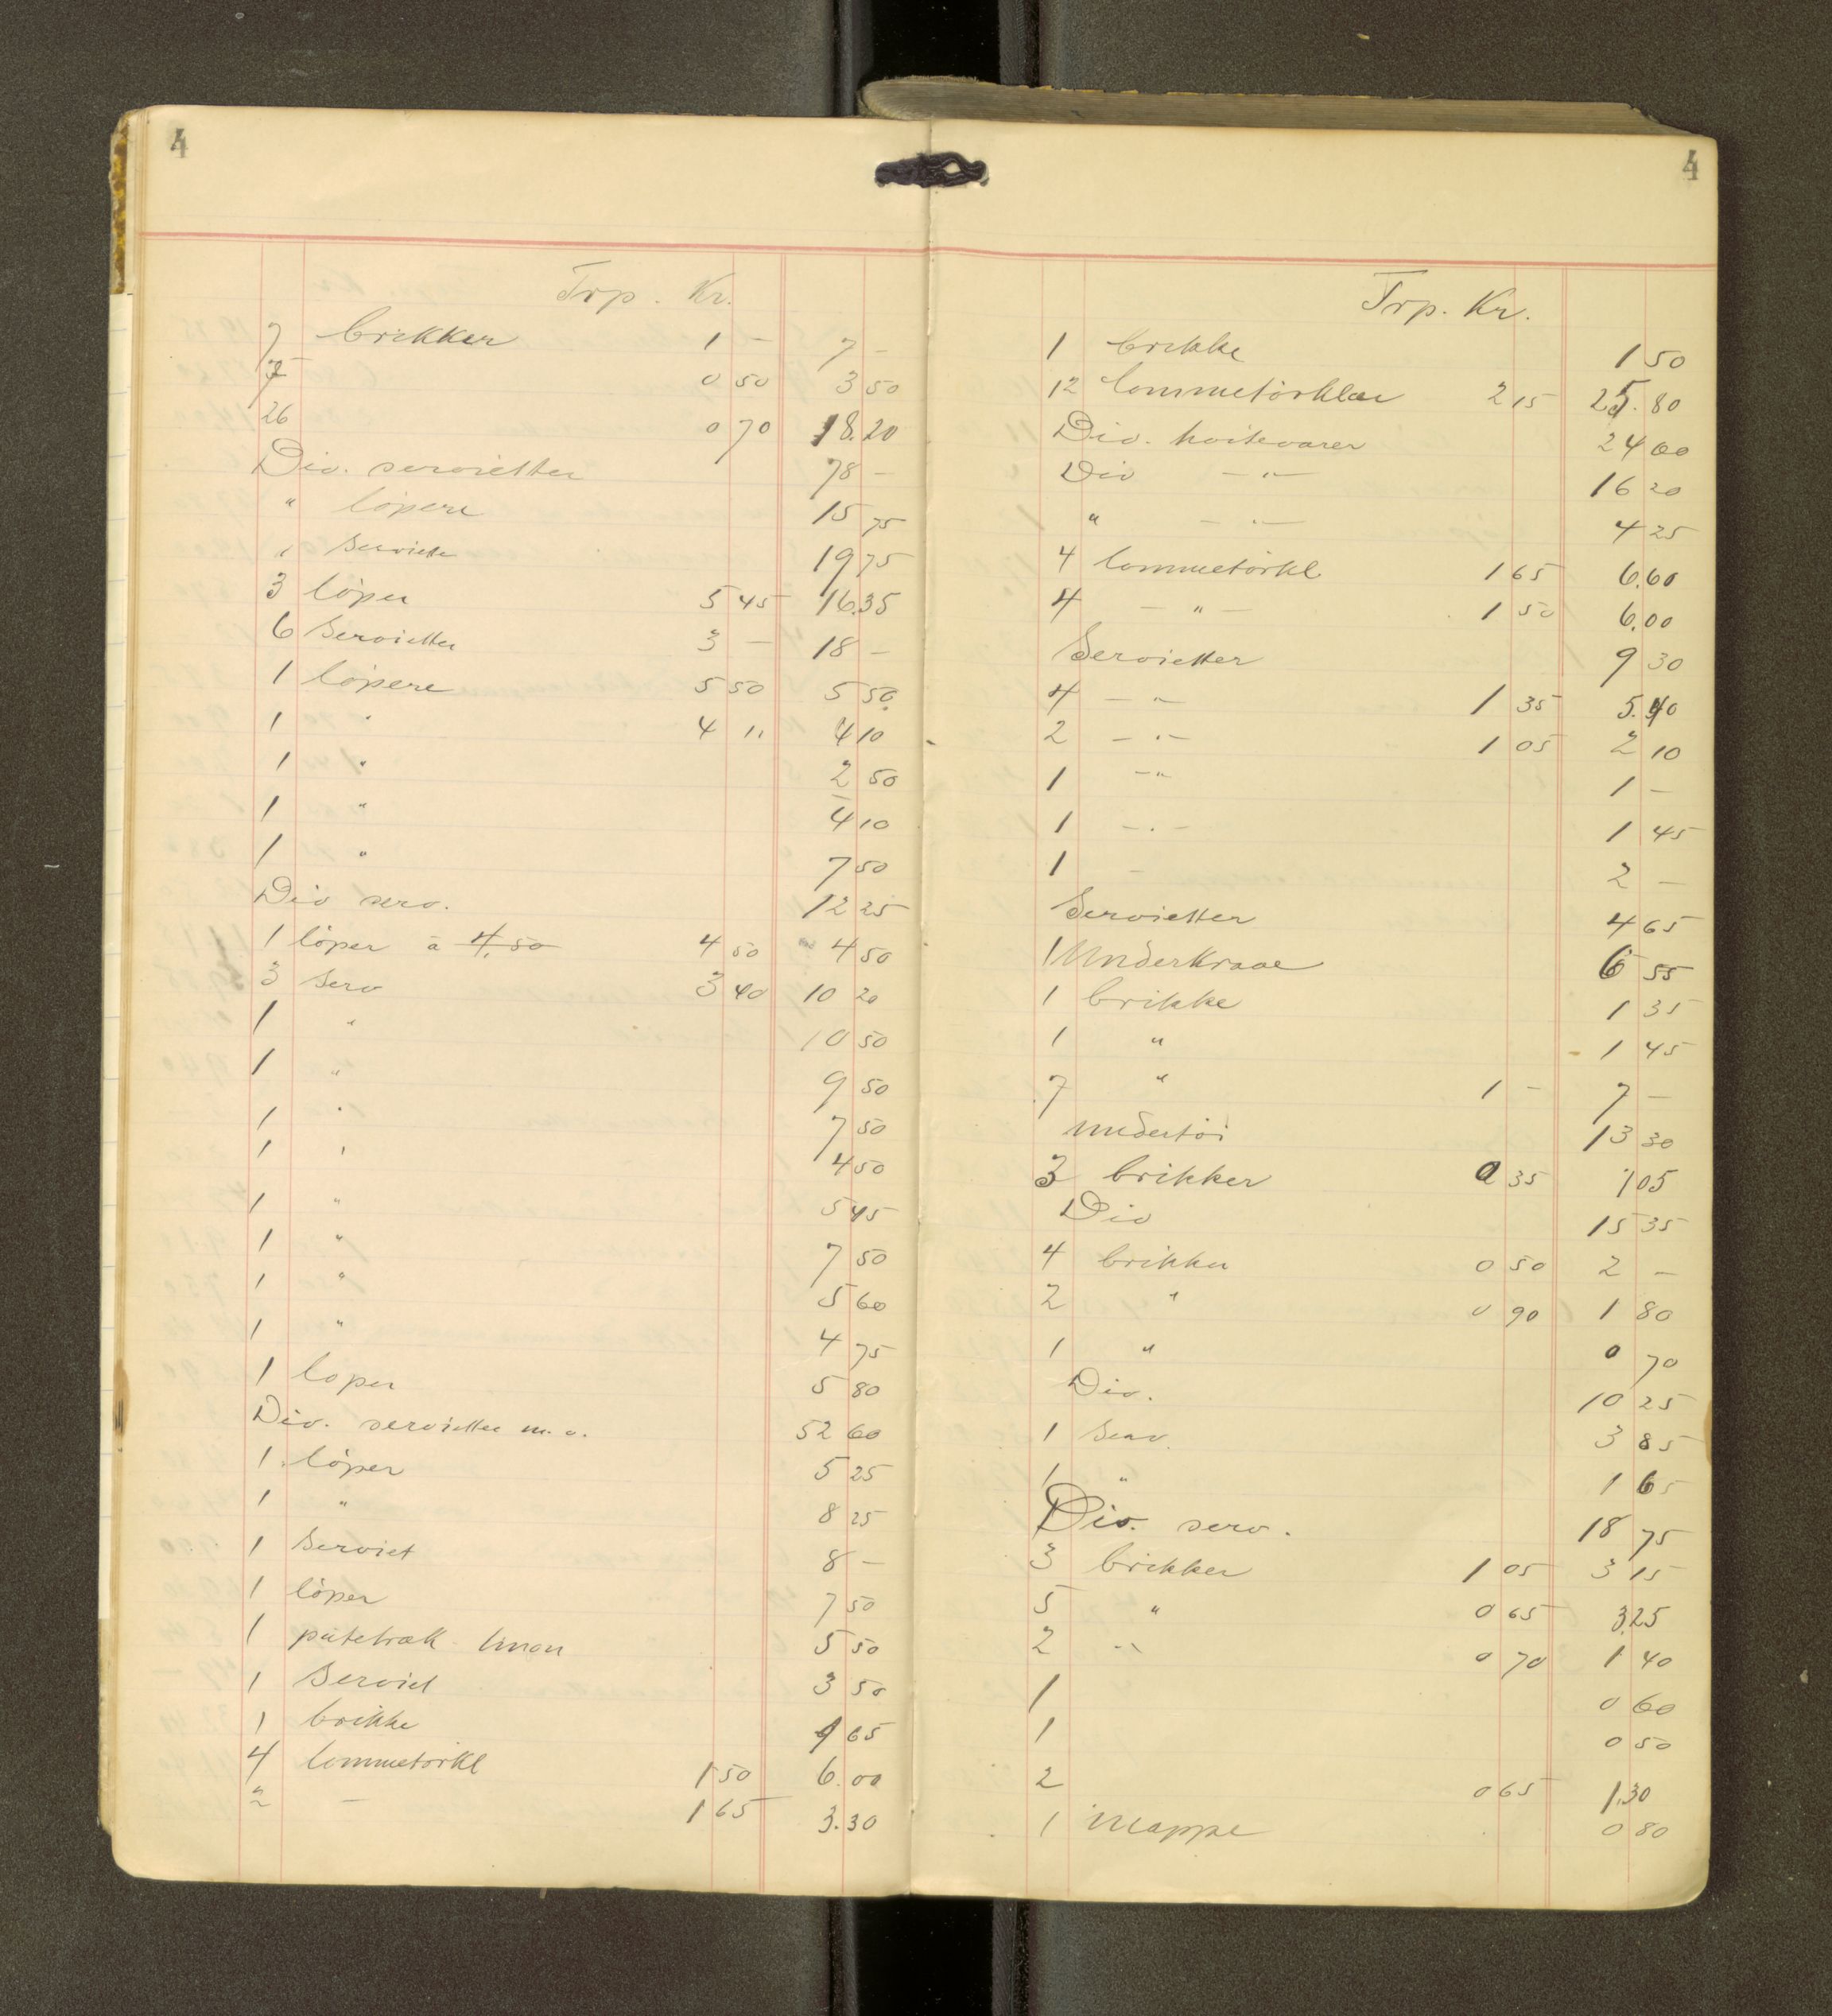 4
Trp. Kr.
7 brikker 1 - 7 -
7 0 50 3 50
26 0 70 18.20
Div. servietter 78 -
" löpere 15 75
" Serviette 19 75
3 löper 5 45 16.35
6 Servietter 3 - 18 -
1 löpere 5 50 5 50
1 " 4 " 4 10
1 " 2 50
1 " 4 10
1 " 7 50
Div serv. 12 25
1 löper à 4,50 4 50 4 50
3 Serv 3 40 10 20
1 " 10 50
1 " 9 50
1 " 7 50
1 " 4 50
1 " 5 45
1 " 7 50
1 " 5 60
1 " 4 75
1 loper 5 80
Div. servietter m. v. 52 60
1 löper 5 25
1 " 8 25
1 Serviet 8 -
1 löper 7 50
1 putetræk linon 5 50
1 Serviet 3 50
1 brikke 1 65
4 lommetörkl 1 50 6.00
2 - 1 65 3.30
4
Trp. Kr.
1 brikke 1 50
12 lommetörklær 2 15 25.80
Div. hvitevarer 24 00
Div - " - 16 20
" - " - 4 25
4 lommetörkl 1 65 6.60
4 - " - 1 50 6.00
Servietter 9 30
4 - " - 1 35 5.40
2 - " - 1 05 2 10
1 - " 1 -
1 - " - 1 45
1 - 2 -
Servietter 4 65
1 Underkraae 6 55
1 brikke 1 35
1 " 1 45
7 " 1 - 7 -
Undertöi 13 30
3 brikker 0 35 1 05
Div 15 35
4 brikker 0 50 2 -
2 " 0 90 1 80
1 " 0 70
Div. 10 25
1 Serv. 3 85
1 " 1 65
Div. serv. 18 75
3 brikker 1 05 3 15
5 " 0 65 3.25
2 " 0 70 1 40
1 0 60
1 0 50
2 0 65 1.30
1 Mappe 0 80